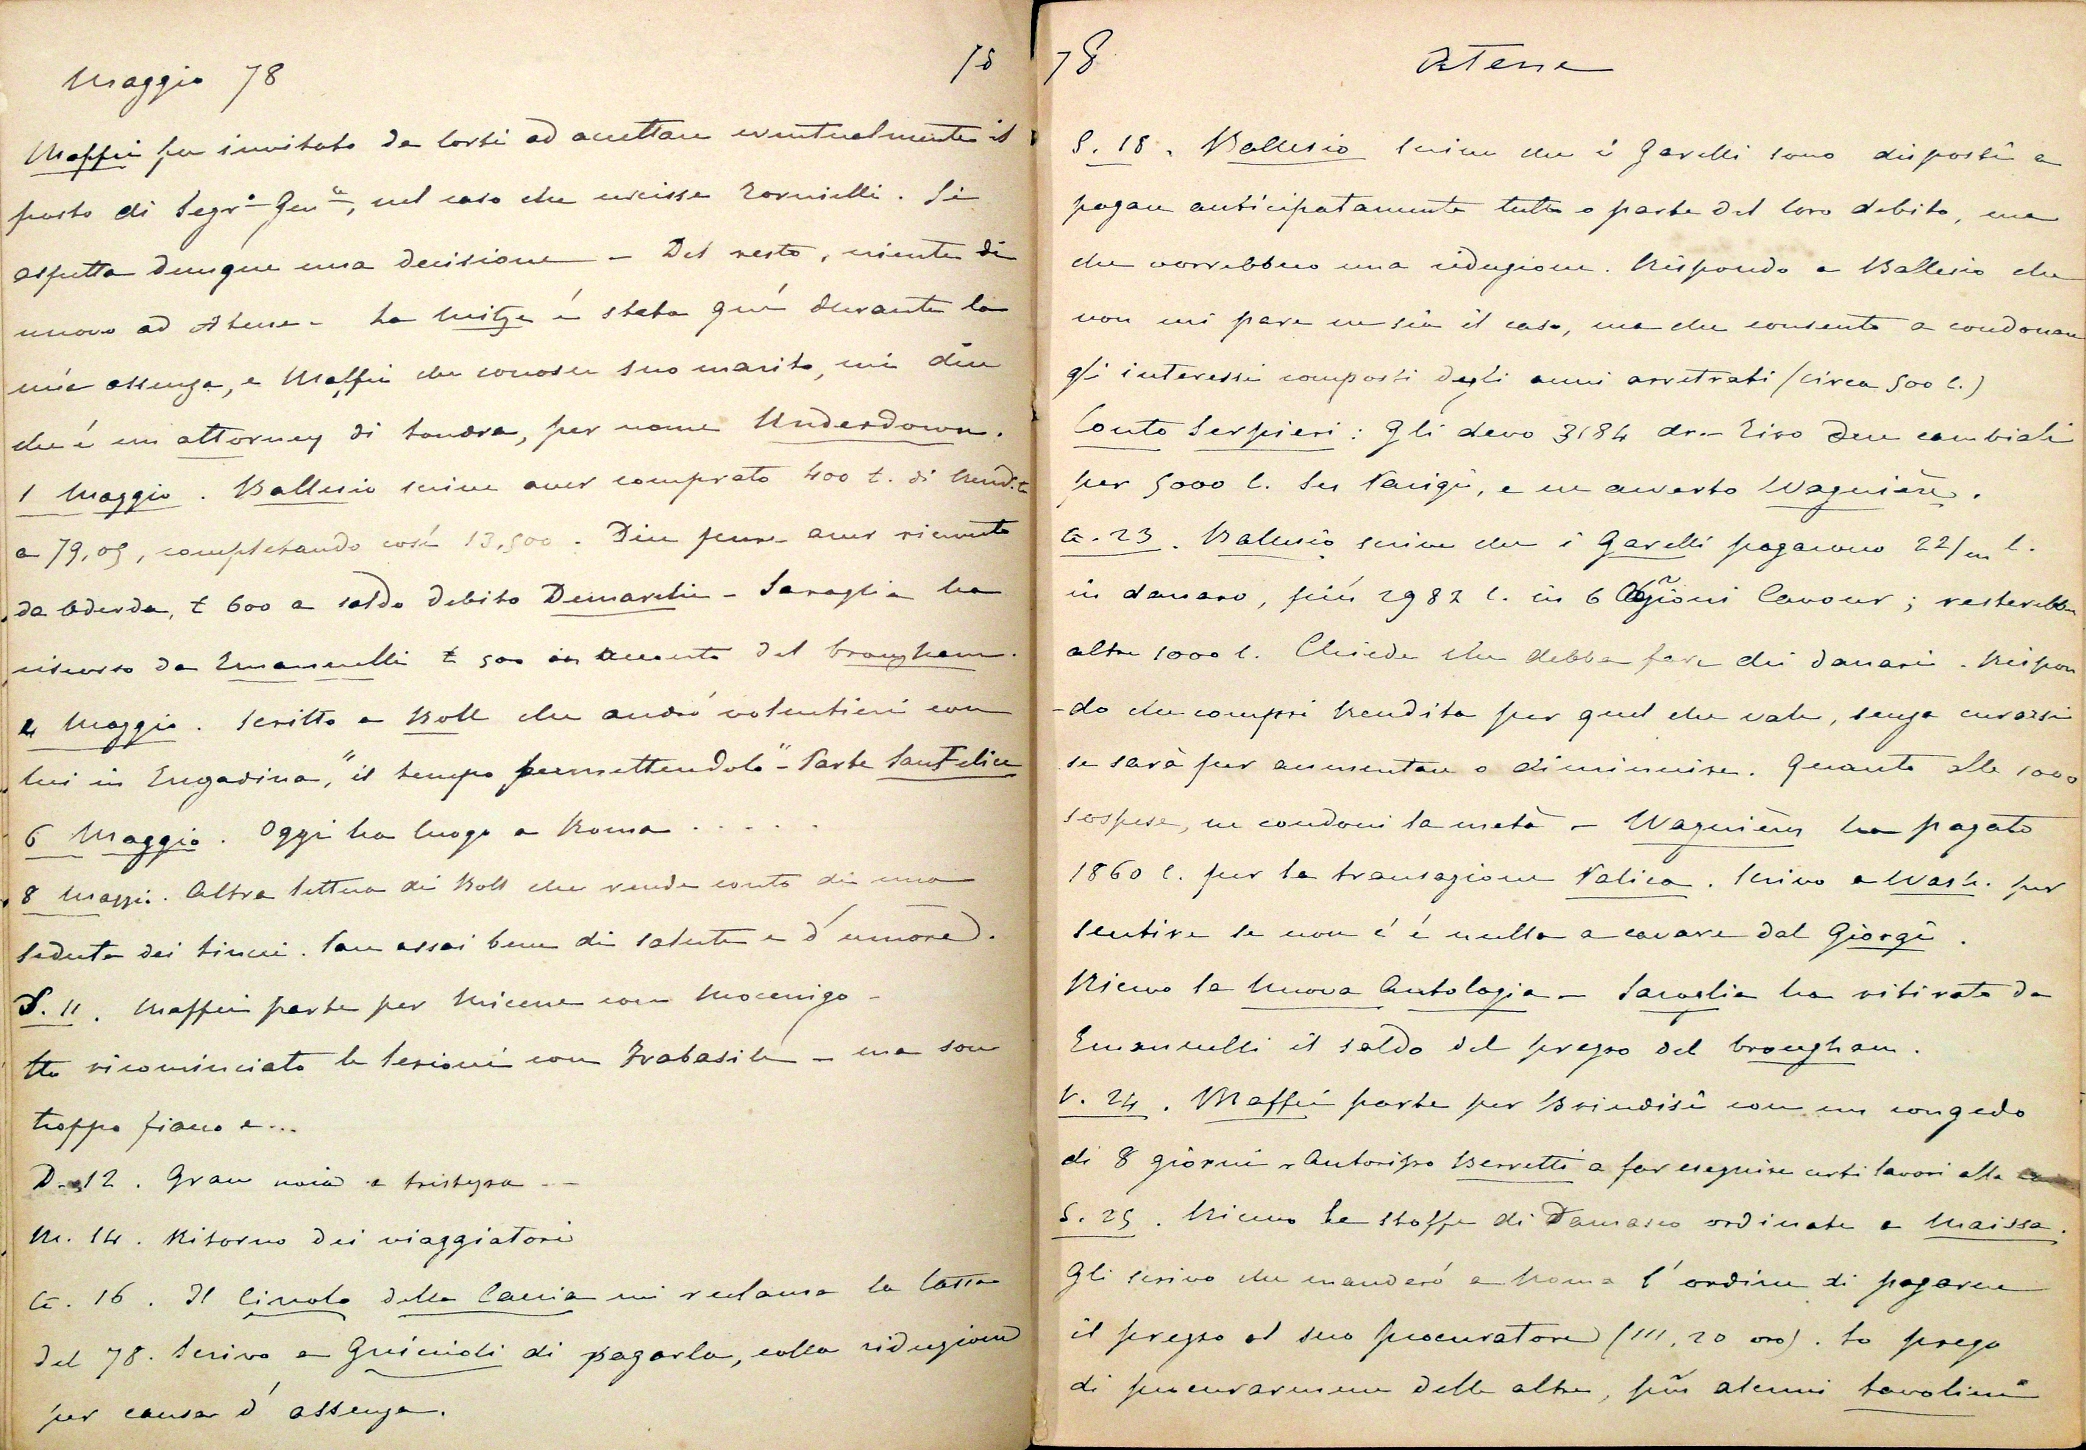 Maggio 78
Maffei fu invitato da Corti ad accettare eventualmente il
posto di Segr.o Gen.le, nel caso che uscisse Tornielli. Si
aspetta dunque una decisione - Del resto, niente di
nuovo ad Atene - La è stata quì durante la
mia assenza, e Maffei che conosce suo marito, mi dice
che è un attorney di Londra, per nome Underdown.
1 Maggio. Ballesio scrive aver comprato 400 £. di Rend.ta
a 79,05, completando così 13,500. Dice pure aver ricevuto
da £ 600 a saldo debito Demarchi - Saraglia ha
riscosso da Emanuelli £ 500 in acconto del brougham.
4 Maggio. Scritto a Boll che andrò volentieri con
lui in Engadina, "il tempo permettendolo" - Parte San Felice
6 Maggio. Oggi ha luogo a Roma . . . . .
8 Maggio. Altra lettera di Boll che rende conto di una
seduta dei Lincei. Sono assai bene di salute e d'umore.
S. 11. Maffei parte per Micene con Mocenigo -
Ho ricominciato le lezioni con Trabasile - ma son
troppo fiacco e...
D. 12. Gran noia e tristezza - -
M. 14. Ritorno dei viaggiatori
G. 16. Il Circolo della Caccia mi reclama la tassa
del 78. Scrivo a Guiccioli di pagarla, colla riduzione
per causa d'assenza.
78 Atene
S. 18. Ballesio scrive che i Garelli sono disposti a
pagare anticipatamente tutto o parte del loro debito, ma
che vorrebbero una riduzione. Rispondo a Ballesio che
non mi pare ne sia il caso, ma che consento a condonare
gli interessi composti degli anni arretrati (circa 500 l.)
Conto Serpieri: Gli devo 3184 dr. - Tiro due cambiali
per 5000 l. su Parigi, e ne avverto Wagnière.
G. 23. Ballesio scrive che i Garelli pagarono 22/m l.
in danaro, più 2982 l. in 6 Azioni Cavour; resterebbero
altre 1000 l. Chiede che debba fare dei danari. Rispon
-do che compri Rendita per quel che vale, senza curarsi
se sarà per aumentare o diminuire. Quanto alle 1000
sospese, ne condoni la metà - Wagnière ha pagato
1860 l. per la transazione Valica. Scrivo a Wash. per
sentire se non c'è nulla a cavare dal Giorgi.
Ricevo la Nuova Antologia - Saraglia ha ritirato da
Emanuelli il saldo del prezzo del brougham.
V. 24. Maffei parte per Brindisi con un congedo
di 8 giorni - Autorizzo Berretti a far eseguire certi lavori alla
S. 25. Ricevo le stoffe di Damasco ordinate a Maissa.
Gli scrivo che manderò a Roma l'ordine di pagarne
il prezzo al suo procuratore (111,20 oro). Lo prego
di procurarmene delle altre, più alcuni tavolini